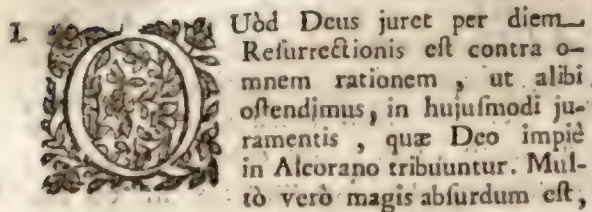 I. QUòd Deus juret per diem
Resurrectionis est contra o-
mnem rationem, ut alibi
ostendimus, in hujusmodi ju-
ramentis, quæ Deo impiè
in Alcorano tribuuntur. Mul-
tò verò magis absurdum est,